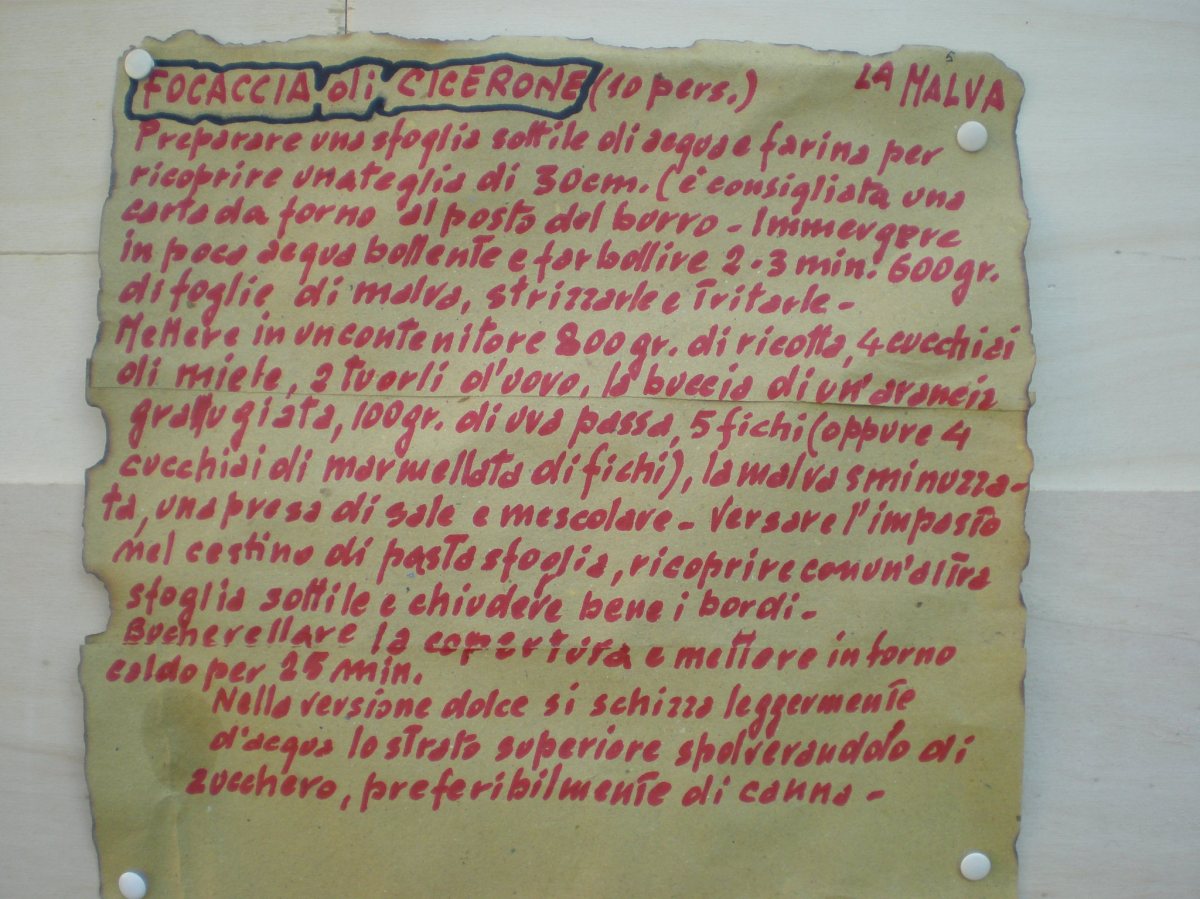 FOCACCIA di CICERONE (10 pers.) LA MALVA
Preparare una sfoglia sottile di acqua e farina per
ricoprire una teglia di 30cm. (é consigliata una
carta da forno al posto del burro - Immergere
in poca acqua bollente e far bollire 2-3 min. 600gr.
di foglie di malva, strizzarle e tritarle -
Mettere in un contenitore 800gr. di ricotta, 4 cucchiai
di miele, 2 tuorli d'uovo, la buccia di un'arancia
grattugiata, 100gr. di uva passa, 5 fichi (oppure 4
cucchiai di marmellata di fichi), la malva sminuzza-
ta, una presa di sale e mescolare - Versare l'impasto
nel cestino di pasta sfoglia, ricoprire con un'altra
sfoglia sottile e chiudere bene i bordi -
Bucherellare la copertura e mettere in forno
caldo per 25 min.
Nella versione dolce si schizza leggermente
d'acqua lo strato superiore spolverandolo di
zucchero, preferibilmente di canna -